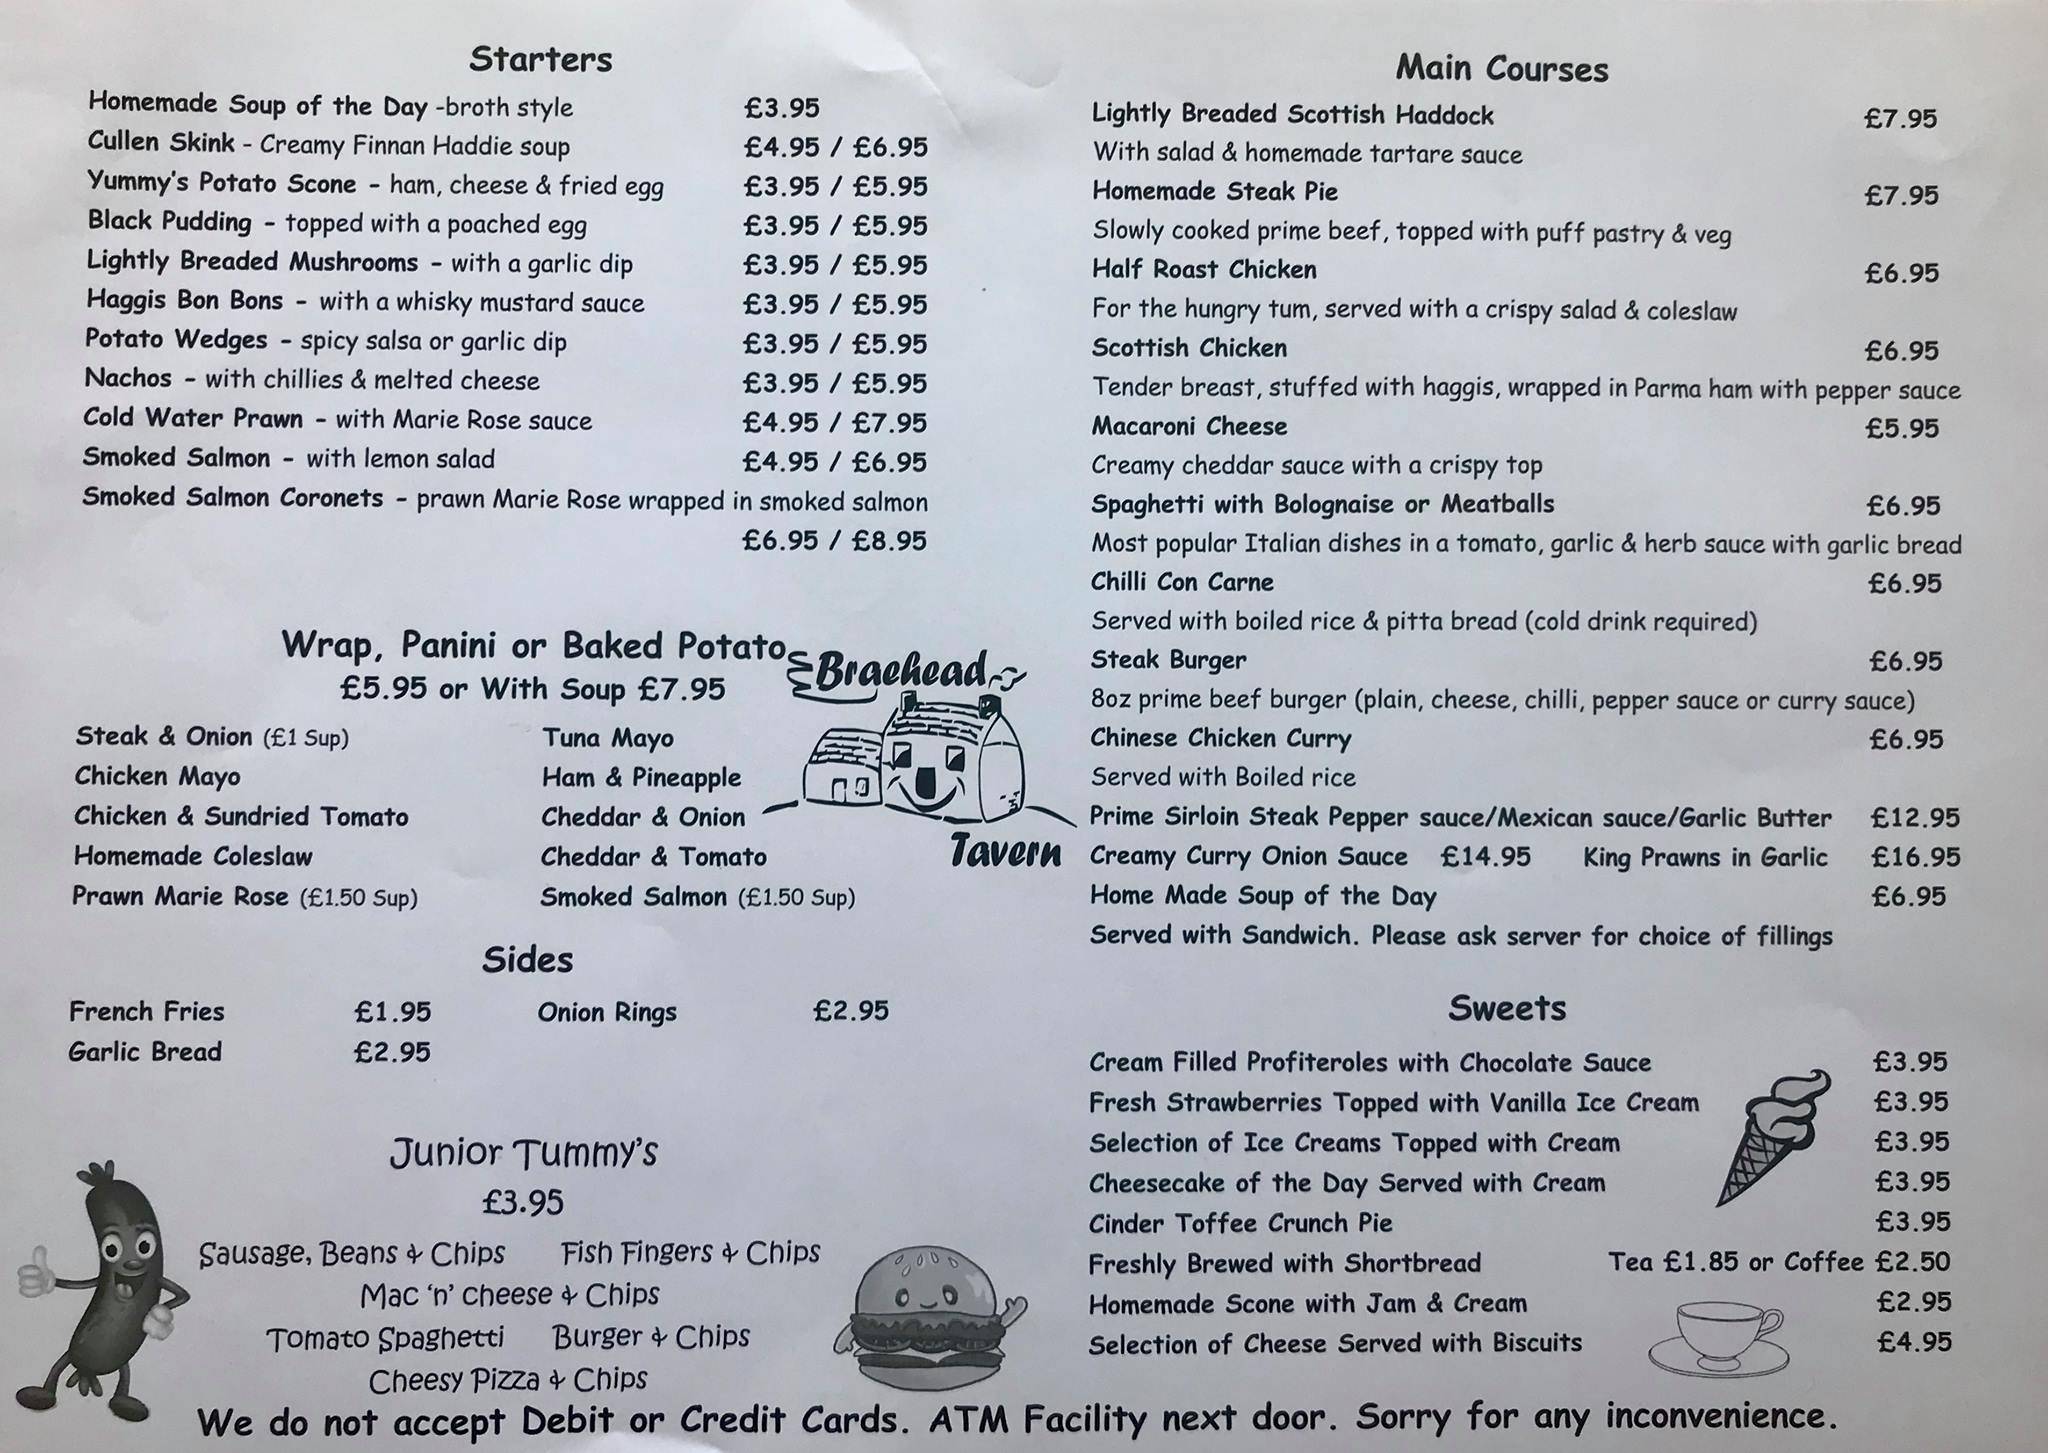 Starters
Homemade Soup of the Day -broth style £3.95
Cullen Skink - Creamy Finnan Haddie soup £4.95 / £6.95
Yummy's Potato Scone - ham, cheese & fried egg £3.95 / £5.95
Black Pudding - topped with a poached egg £3.95 / £5.95
Lightly Breaded Mushrooms - with a garlic dip £3.95 / £5.95
Haggis Bon Bons - with a whisky mustard sauce £3.95 / £5.95
Potato Wedges - spicy salsa or garlic dip £3.95 / £5.95
Nachos - with chillies & melted cheese £3.95 / £5.95
Cold Water Prawn - with Marie Rose sauce £4.95 / £7.95
Smoked Salmon - with lemon salad £4.95 / £6.95
Smoked Salmon Coronets - prawn Marie Rose wrapped in smoked salmon
£6.95 / £8.95
Wrap, Panini or Baked Potato
£5.95 or With Soup £7.95
Steak & Onion (£1 Sup) Tuna Mayo
Chicken Mayo Ham & Pineapple
Chicken & Sundried Tomato Cheddar & Onion
Homemade Coleslaw Cheddar & Tomato
Prawn Marie Rose (£1.50 Sup) Smoked Salmon (£1.50 Sup)
Braehead
Tavern
Sides
French Fries £1.95 Onion Rings £2.95
Garlic Bread £2.95
Junior Tummy's
£3.95
Sausage, Beans & Chips Fish Fingers & Chips
Mac 'n' cheese & Chips
Tomato Spaghetti Burger & Chips
Cheesy Pizza & Chips
Main Courses
Lightly Breaded Scottish Haddock £7.95
With salad & homemade tartare sauce
Homemade Steak Pie £7.95
Slowly cooked prime beef, topped with puff pastry & veg
Half Roast Chicken £6.95
For the hungry tum, served with a crispy salad & coleslaw
Scottish Chicken £6.95
Tender breast, stuffed with haggis, wrapped in Parma ham with pepper sauce
Macaroni Cheese £5.95
Creamy cheddar sauce with a crispy top
Spaghetti with Bolognaise or Meatballs £6.95
Most popular Italian dishes in a tomato, garlic & herb sauce with garlic bread
Chilli Con Carne £6.95
Served with boiled rice & pitta bread (cold drink required)
Steak Burger £6.95
8oz prime beef burger (plain, cheese, chilli, pepper sauce or curry sauce)
Chinese Chicken Curry £6.95
Served with Boiled rice
Prime Sirloin Steak Pepper sauce/Mexican sauce/Garlic Butter £12.95
Creamy Curry Onion Sauce £14.95 King Prawns in Garlic £16.95
Home Made Soup of the Day £6.95
Served with Sandwich. Please ask server for choice of fillings
Sweets
Cream Filled Profiteroles with Chocolate Sauce £3.95
Fresh Strawberries Topped with Vanilla Ice Cream £3.95
Selection of Ice Creams Topped with Cream £3.95
Cheesecake of the Day Served with Cream £3.95
Cinder Toffee Crunch Pie £3.95
Freshly Brewed with Shortbread Tea £1.85 or Coffee £2.50
Homemade Scone with Jam & Cream £2.95
Selection of Cheese Served with Biscuits £4.95
We do not accept Debit or Credit Cards. ATM Facility next door. Sorry for any inconvenience.